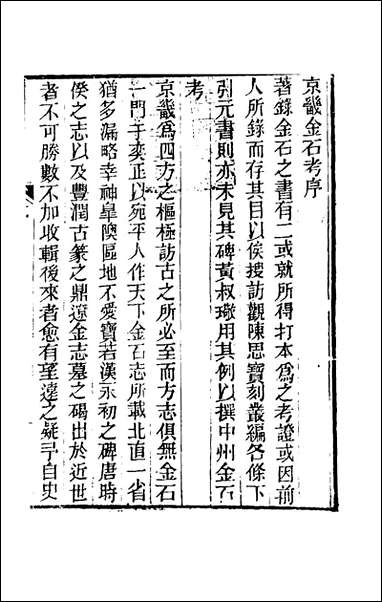 京畿金石考序
著錄金石之書有二或就所得打本爲之考證或因前
人所錄而存其目以俟搜訪觀陳思寶刻叢編各條下
引元書則亦未見其碑黃叔璥用其例以撰中州金石
考
京畿爲四方之樞極訪古之所必至而方志俱無金石
一門于奕正以宛平人作天下金石志所載北直一省
猶多漏略幸神臯陜區地不愛寶若漢永初之碑唐時
俟之志以及豐潤古篆之鼎遼金志墓之碣出於近世
者不可勝數不加收輯後來者愈有望遠之疑予自史